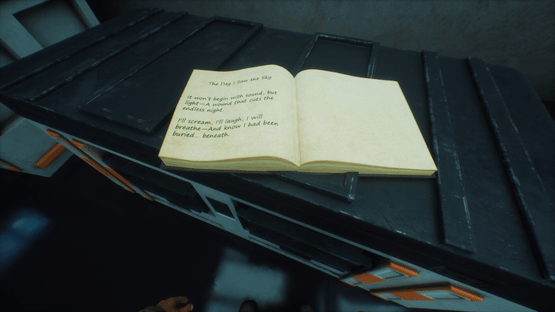 The Day I Saw the Sky
It won't begin with sound, but
light—A wound that cuts the
endless night.
I'll scream, I'll laugh, I will
breathe—And know I had been
buried... beneath